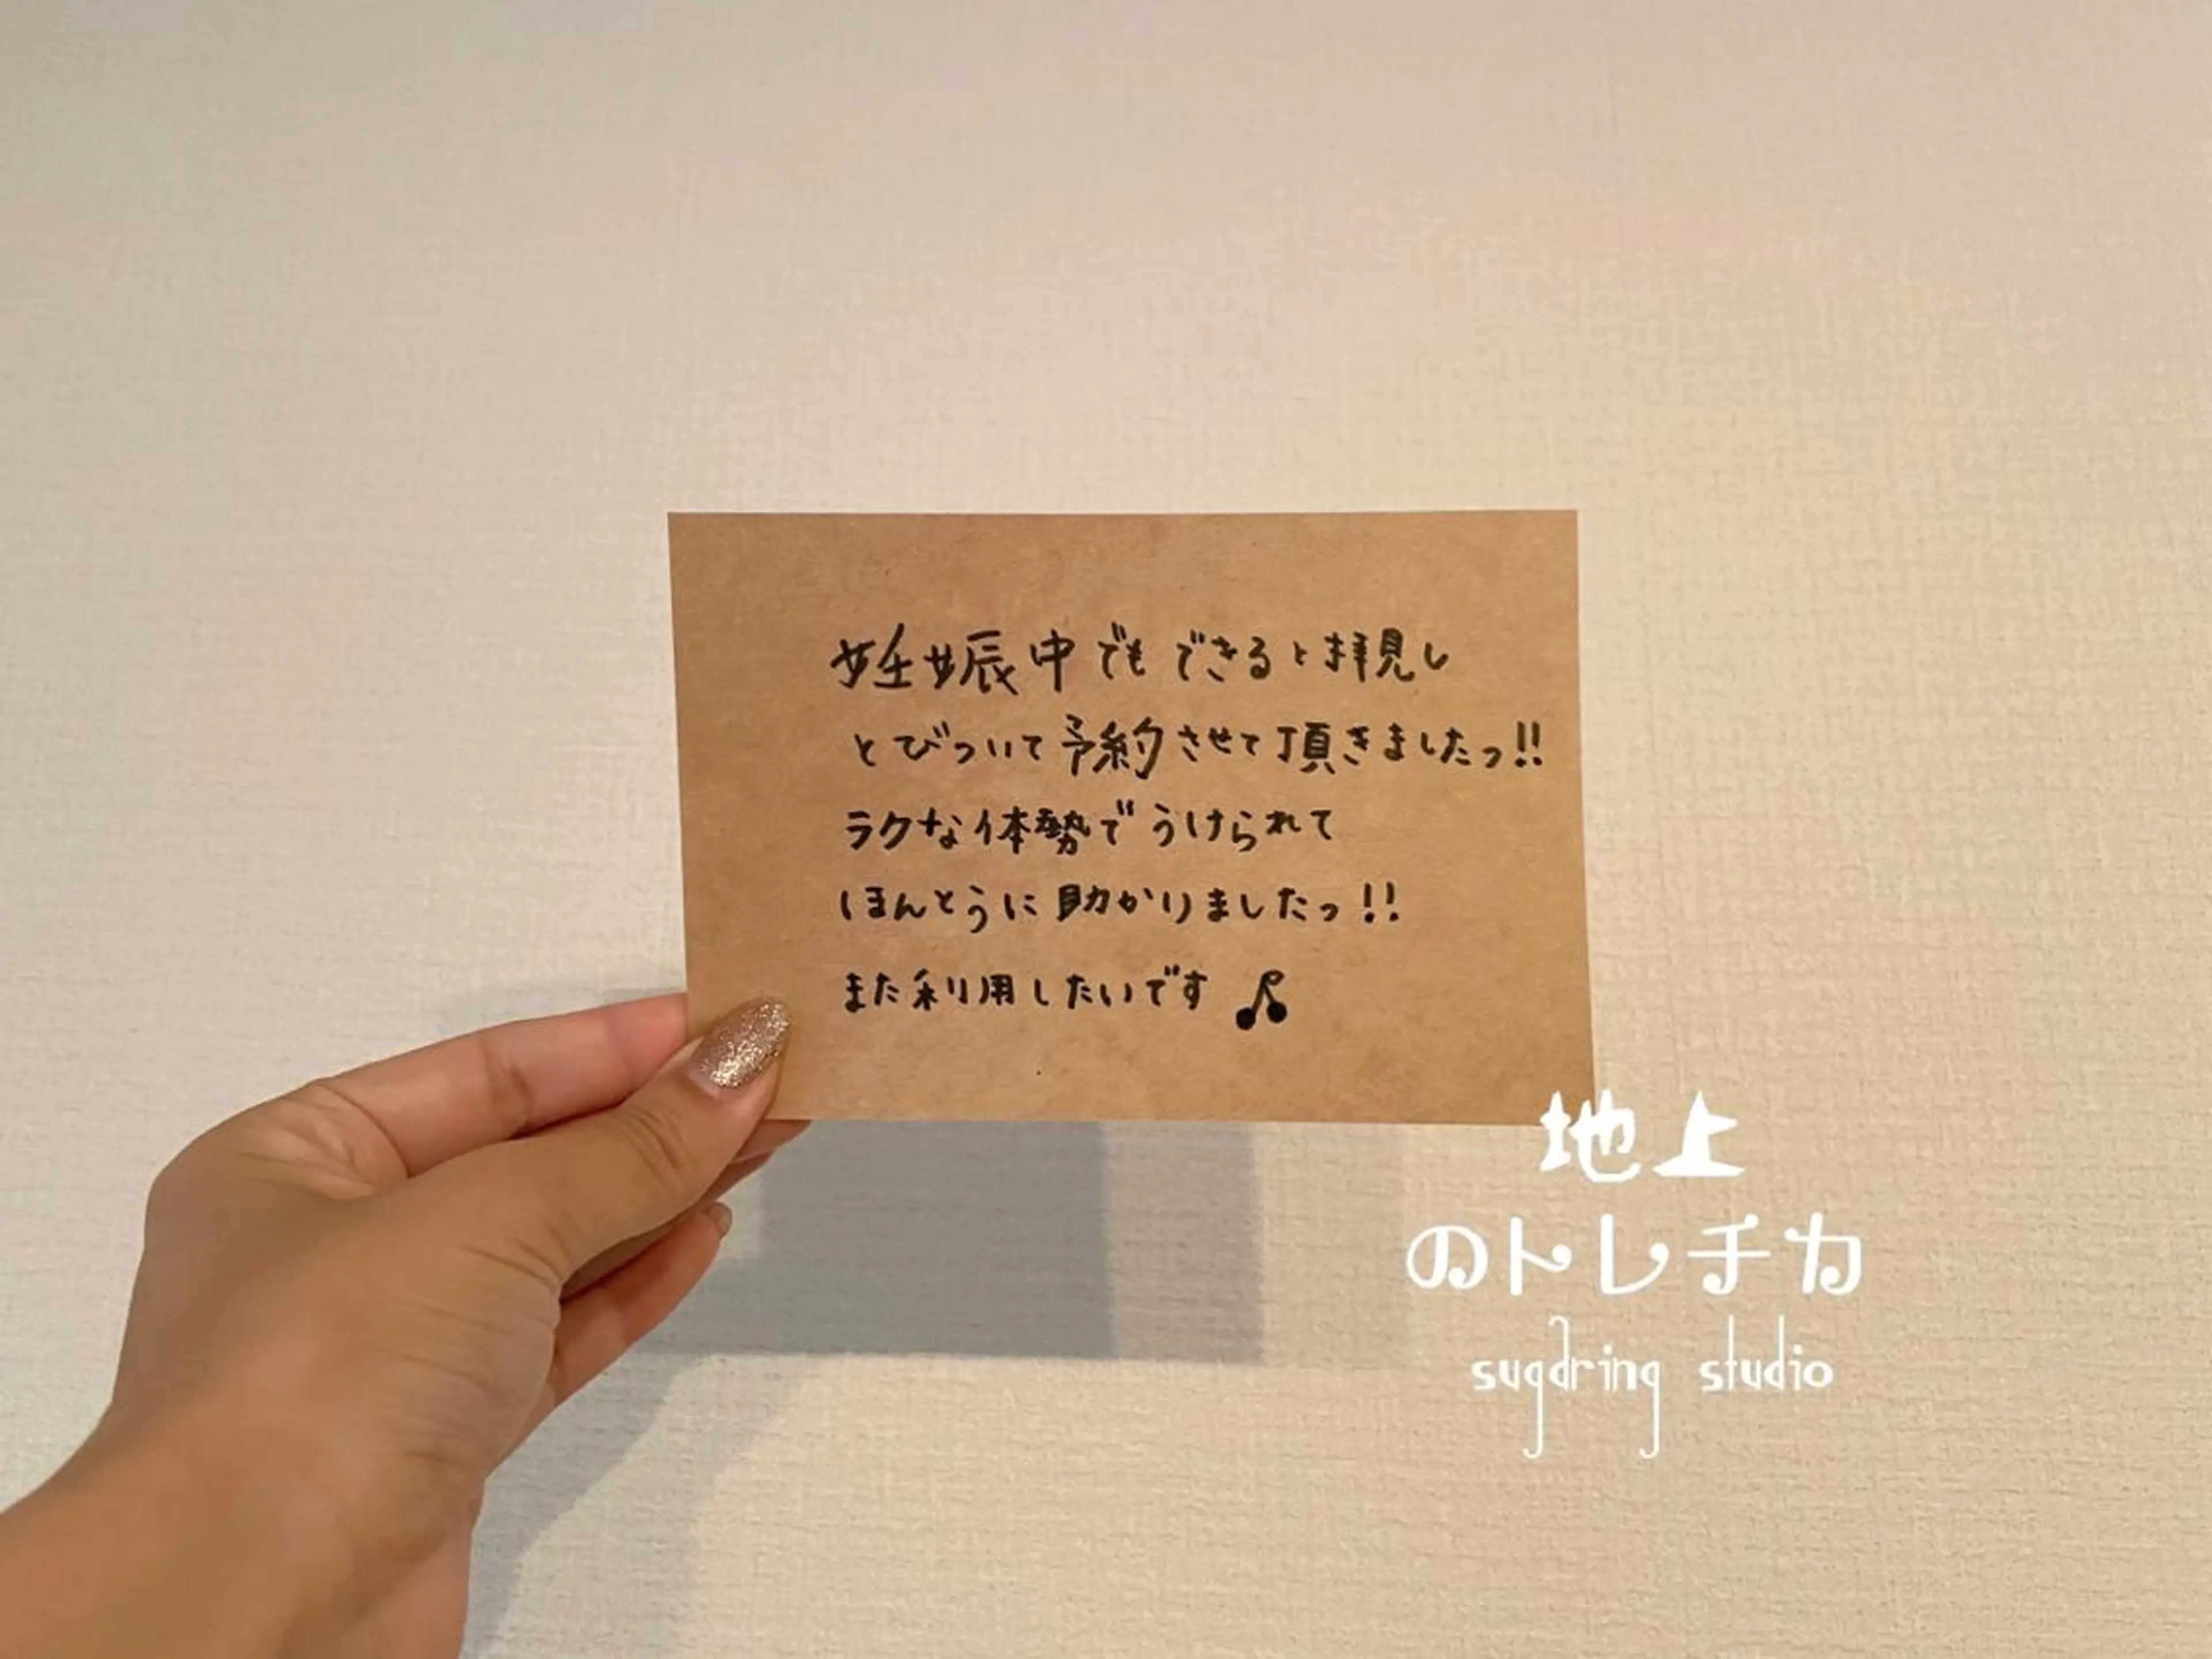 妊娠中でもできると拝見し
とびついて予約させて頂きましたっ!!
ラクな体勢でうけられて
ほんとうに助かりましたっ!!
また利用したいです♪
地上
のトレチカ
sugdring studio